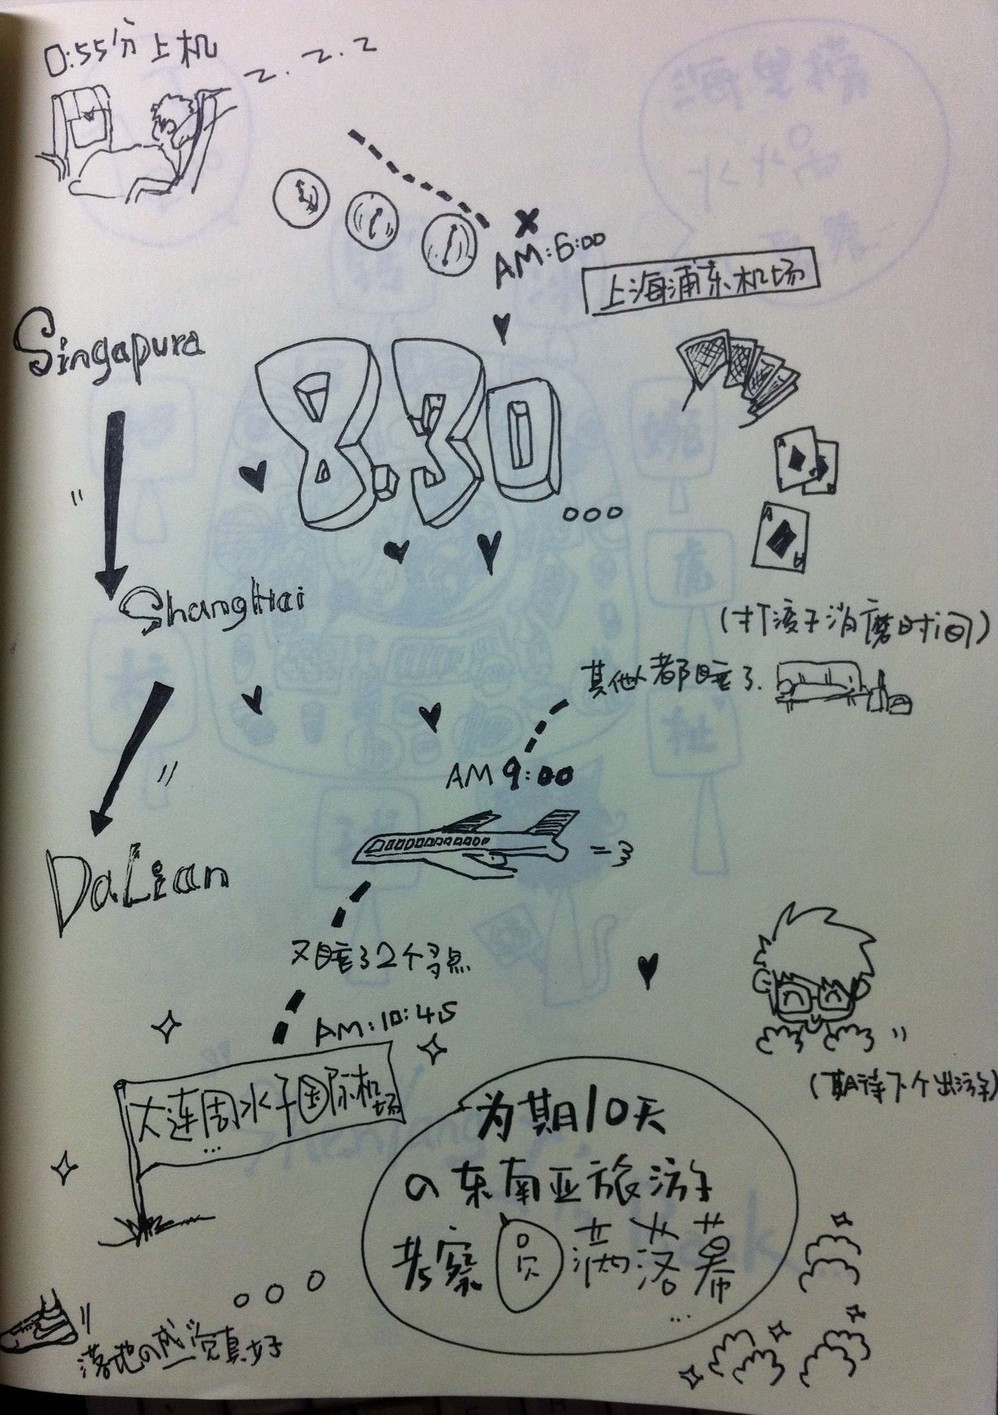 0:55分上机
z.z.z
AM:6:00
上海浦东机场
Singapura
8.30...
ShangHai
(打渡子消磨时间)
其他人都睡了.
AM 9:00
DaLian
又睡了2个多点
AM:10:45
大连周水子国际机场
...
(期待下个出游)
为期10天
の东南亚旅游
考察圆满落幕
...
落地の感觉真好